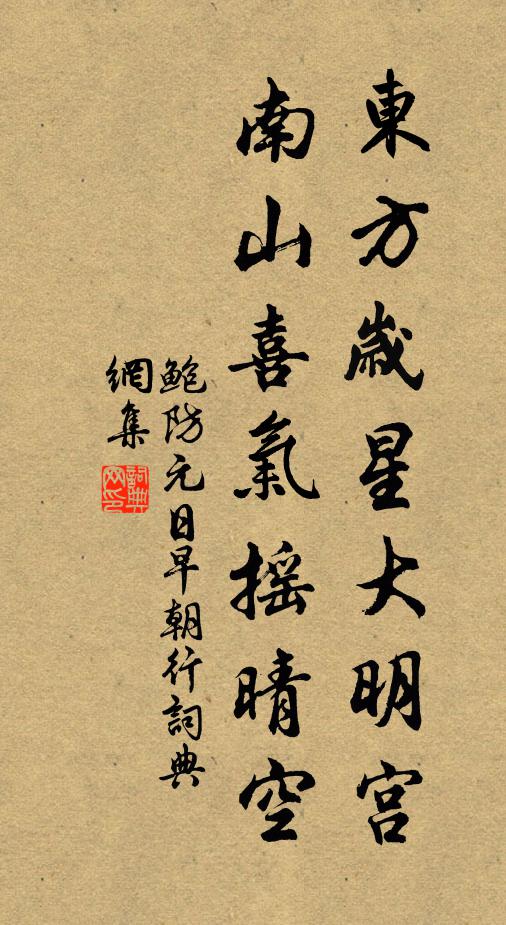 東方歲星大明宮
南山喜氣搖晴空
鮑防元日早朝行詞典
網集
詞典
网印